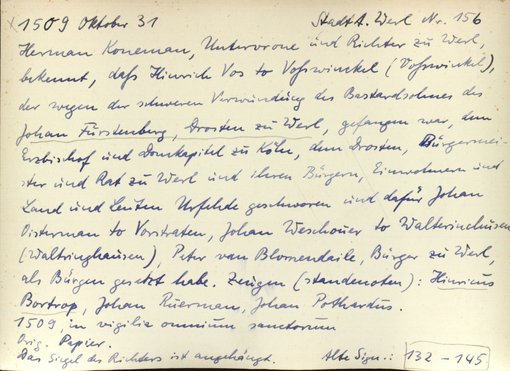 1509 Oktober 31 Stadt A. Werl Nr. 156
Herman Koneman, Untervrone und Richter zu Werl,
bekennt, daß Hinrich Vos to Voßwinkel (Voßwinkel),
der wegen der schweren Verwundung des Bastardsohnes des
Johan Fürstenberg, Drosten zu Werl, gefangen war, dem
Erzbischof und Domkapitel zu Köln, dem Drosten, Bürgermei-
ster und Rat zu Werl und ihren Bürgern, Einwohnern und
Land und Leuten Urfehde geschworen und dafür Johan
Oisterman to Vorstraten, Johan Weschouer to Walterinchusen
(Waltringhausen), Peter van Blomendaile, Bürger zu Werl,
als Bürgen gesetzt habe. Zeugen (standenoten): Hinricus
Bortrop, Johan Ruerman, Johan Pothardus.
1509, in vigilia omnium sanctorum
Orig. Papier.
Das Siegel des Richters ist angehängt. Alte Sign.: 132-145